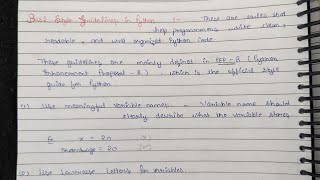 Basic Style Guidelines in Python :- These are rules that
help programmers write clean,
readable, and well organized Python code
These guidelines are mainly defined in PEP-8 (Python
Enhancement Proposal - 8), which is the official style
guide for Python
(1) Use meaningful variable names. - Variable name should
clearly describe what the variable stores.
Ex x = 20 (x)
= 20 (✓)
(2) Use Lowercase Letters for variables.